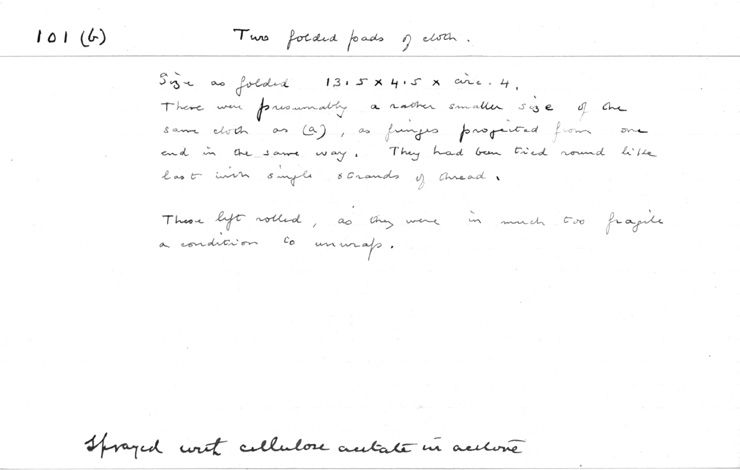 101 (b) Two folded pads of cloth.
Size as folded 13.5 x 4.5 x circ. 4.
These were presumably a rather smaller size of the
same cloth as (a), as fringes projected from one
end in the same way. They had been tied round like
last with single strands of thread.
These left rolled, as they were in much too fragile
a condition to unwrap.
Sprayed with cellulose acetate in acetone